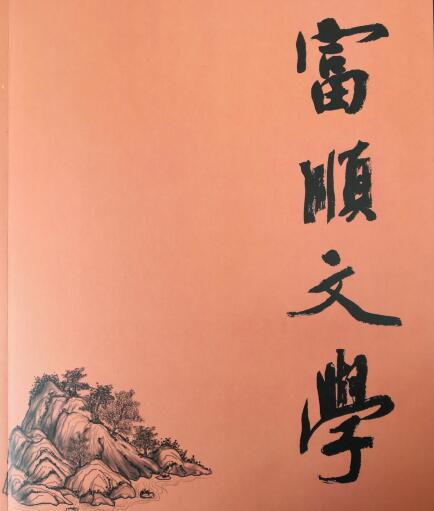 富順文學